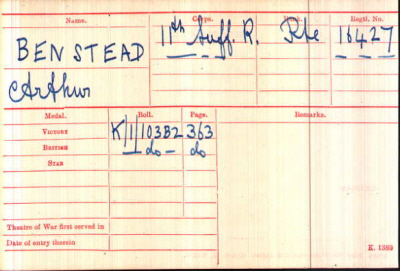 Name. Corps. Rank. Regtl. No.
BENSTEAD 11th Suff. R. Pte 16427
Arthur
Medal. Roll. Page. Remarks.
VICTORY K/1/103B2 363
BRITISH do do
STAR
Theatre of War first served in
Date of entry therein K. 1380